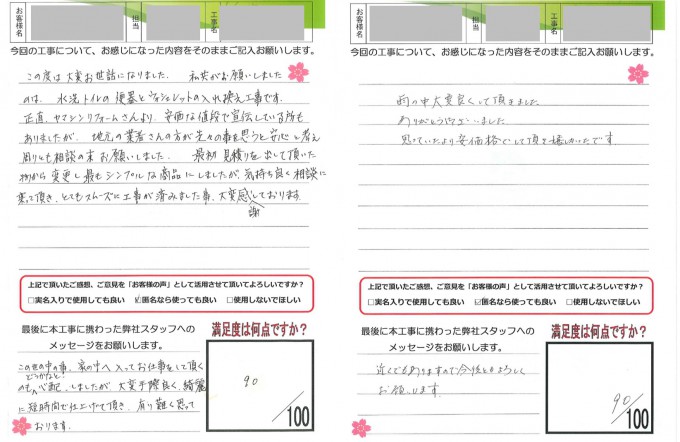 お客様名
担当
工事名
今回の工事について、お感じになった内容をそのままご記入お願いします。
この度は大変お世話になりました。 私共がお願いしました
のは、水洗トイレの便器とウォシュレットの入れ換え工事です。
正直、ヤマシンリフォームさんより、安価な値段で宣伝している所も
ありましたが、地元の業者さんの方が先々の事を思うと安心と考え
周りとも相談の末お願いしました。 最初見積りを出して頂いた
物から変更し最もシンプルな商品にしましたが、気持ち良く相談に
乗って頂き、とてもスムーズに工事が済みました事、大変感謝しております。
上記で頂いたご感想、ご意見を「お客様の声」として活用させて頂いてよろしいですか?
□実名入りで使用しても良い ☑匿名なら使っても良い □使用しないでほしい
最後に本工事に携わった弊社スタッフへの
メッセージをお願いします。
この世の中の事、家の中へ入ってお仕事をして頂く
のもどうかなと?心配しましたが、大変手際良く、綺麗
に短時間で仕上げて頂き、有り難く思って
おります。
満足度は何点ですか?
90
/100
お客様名
担当
工事名
今回の工事について、お感じになった内容をそのままご記入お願いします。
雨の中大変良くして頂きました
ありがとうございました
思っていたより安価格でして頂き嬉しかったです。
上記で頂いたご感想、ご意見を「お客様の声」として活用させて頂いてよろしいですか?
□実名入りで使用しても良い ☑匿名なら使っても良い □使用しないでほしい
最後に本工事に携わった弊社スタッフへの
メッセージをお願いします。
近くでもありますので今後ともよろしく
お願いします。
満足度は何点ですか?
90
/100